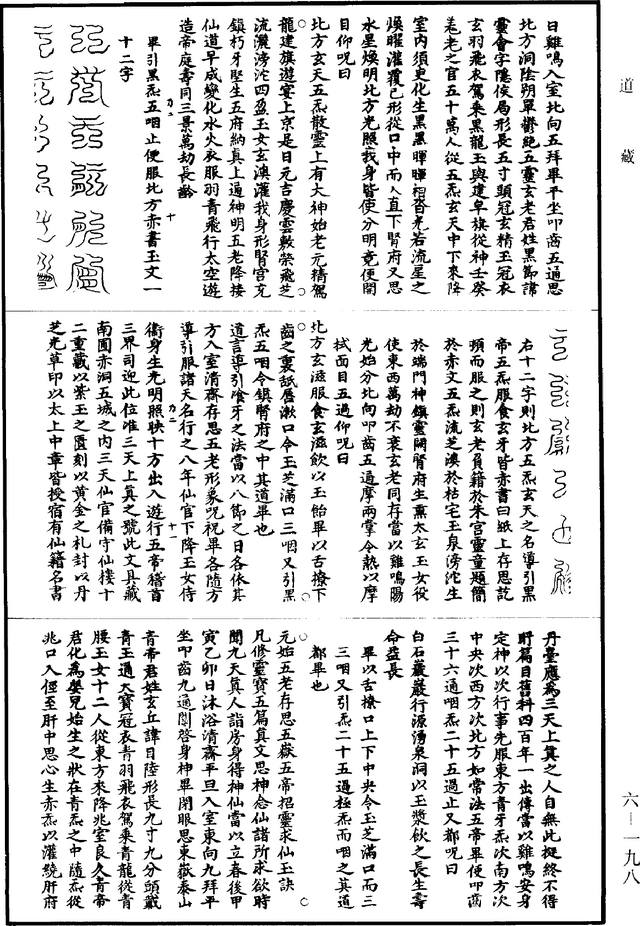 道藏
日雞鳴入室北向五拜畢平坐叩齒五通思
北方洞陰朔單鬱絕五靈玄老君姓黑節諱
靈會字隱侯局形長五寸頭冠玄精玉冠衣
玄羽飛衣駕乘黑龍玉輿建皁旗從神壬癸
耄老之官五十萬人從五炁玄天中下來降
室內須臾化生黑黑暉暉相沓光若流星之
煥曜灌覆己形從口中而入直下腎府又思
水星煥明北方光照我身皆使分明竟便閉
目仰呪曰
北方玄天五炁散靈上有大神始老元精駕
龍建旗遊宴上京是日元吉慶雲敷榮飛芝
流灑滂沱四盈玉女玄澳灌我身形腎宮充
鎮朽牙堅生五府納真上通神明五老降接
仙道早成變化水火衣服羽青飛行太空遊
造帝庭壽同三景萬劫長齡
畢引黑炁五咽止便服北方赤書玉文一
十二字
右十二字則北方五炁玄天之名導引黑
帝五炁服食玄牙皆赤書曰紙上存思訖
頓而服之則玄老負籍於朱宮靈童題簡
於赤文五炁流芝澳於枯宅玉泉滂沱生
於端門神鎮靈闕腎府生薰太玄玉女役
使東西萬劫不衰玄老同存當以雞鳴陽
光始分北向叩齒五通摩兩掌令熱以摩
拭面目五過仰呪曰
北方玄滋服食玄滋飲以玉飴畢以舌撩下
齒之裏舐唇漱口令玉芝滿口三咽又引黑
炁五咽令鎮腎府之中其道畢也
道言導引飡牙之法當以八節之日各依其
方入室清齋存思五老形象呪祝畢各隨方
導引服諸天名行之八年仙官下降玉女侍
衛身生光明照映十方出入遊行五帝稽首
三界司迎此位准三天上真之號此文具藏
南圃赤洞五城之內三天仙官備守仙樓十
二重藏以紫玉之匱刻以黃金之札封以丹
芝光草印以太上中章皆授宿有仙籍名書
丹臺應為三天上真之人自無此挺終不得
盱篇目舊科四百年一出傳當以雞鳴安身
定神以次行事先服東方青牙炁次南方次
中央次西方次北方如常法五帝畢便叩齒
三十六通咽炁二十五過止又都呪曰
白石巖巖行源湧泉洞以玉漿飲之長生壽
命益長
畢以舌撩口上下中央令玉芝滿口而三
三咽又引炁二十五過極炁而咽之其道
都畢也
元始五老存思五嶽五帝招靈求仙玉訣
凡修靈寶五篇真文思神念仙諸所求欲時
聞九天真人詣房身得神仙當以立春後甲
寅乙卯日沐浴清齋平旦入室東向九拜平
坐叩齒九通
啓身神畢閉眼思東嶽泰山
青帝君姓玄丘諱目陸形長九寸九分頭戴
青玉通天寶冠衣青羽飛衣駕乘青龍從青
腰玉女十二人從東方來降兆室良久青帝
君化為嬰兒始生之狀在青炁之中隨炁從
兆口入徑至肝中思心生赤炁以灌繞肝府
六—一九八